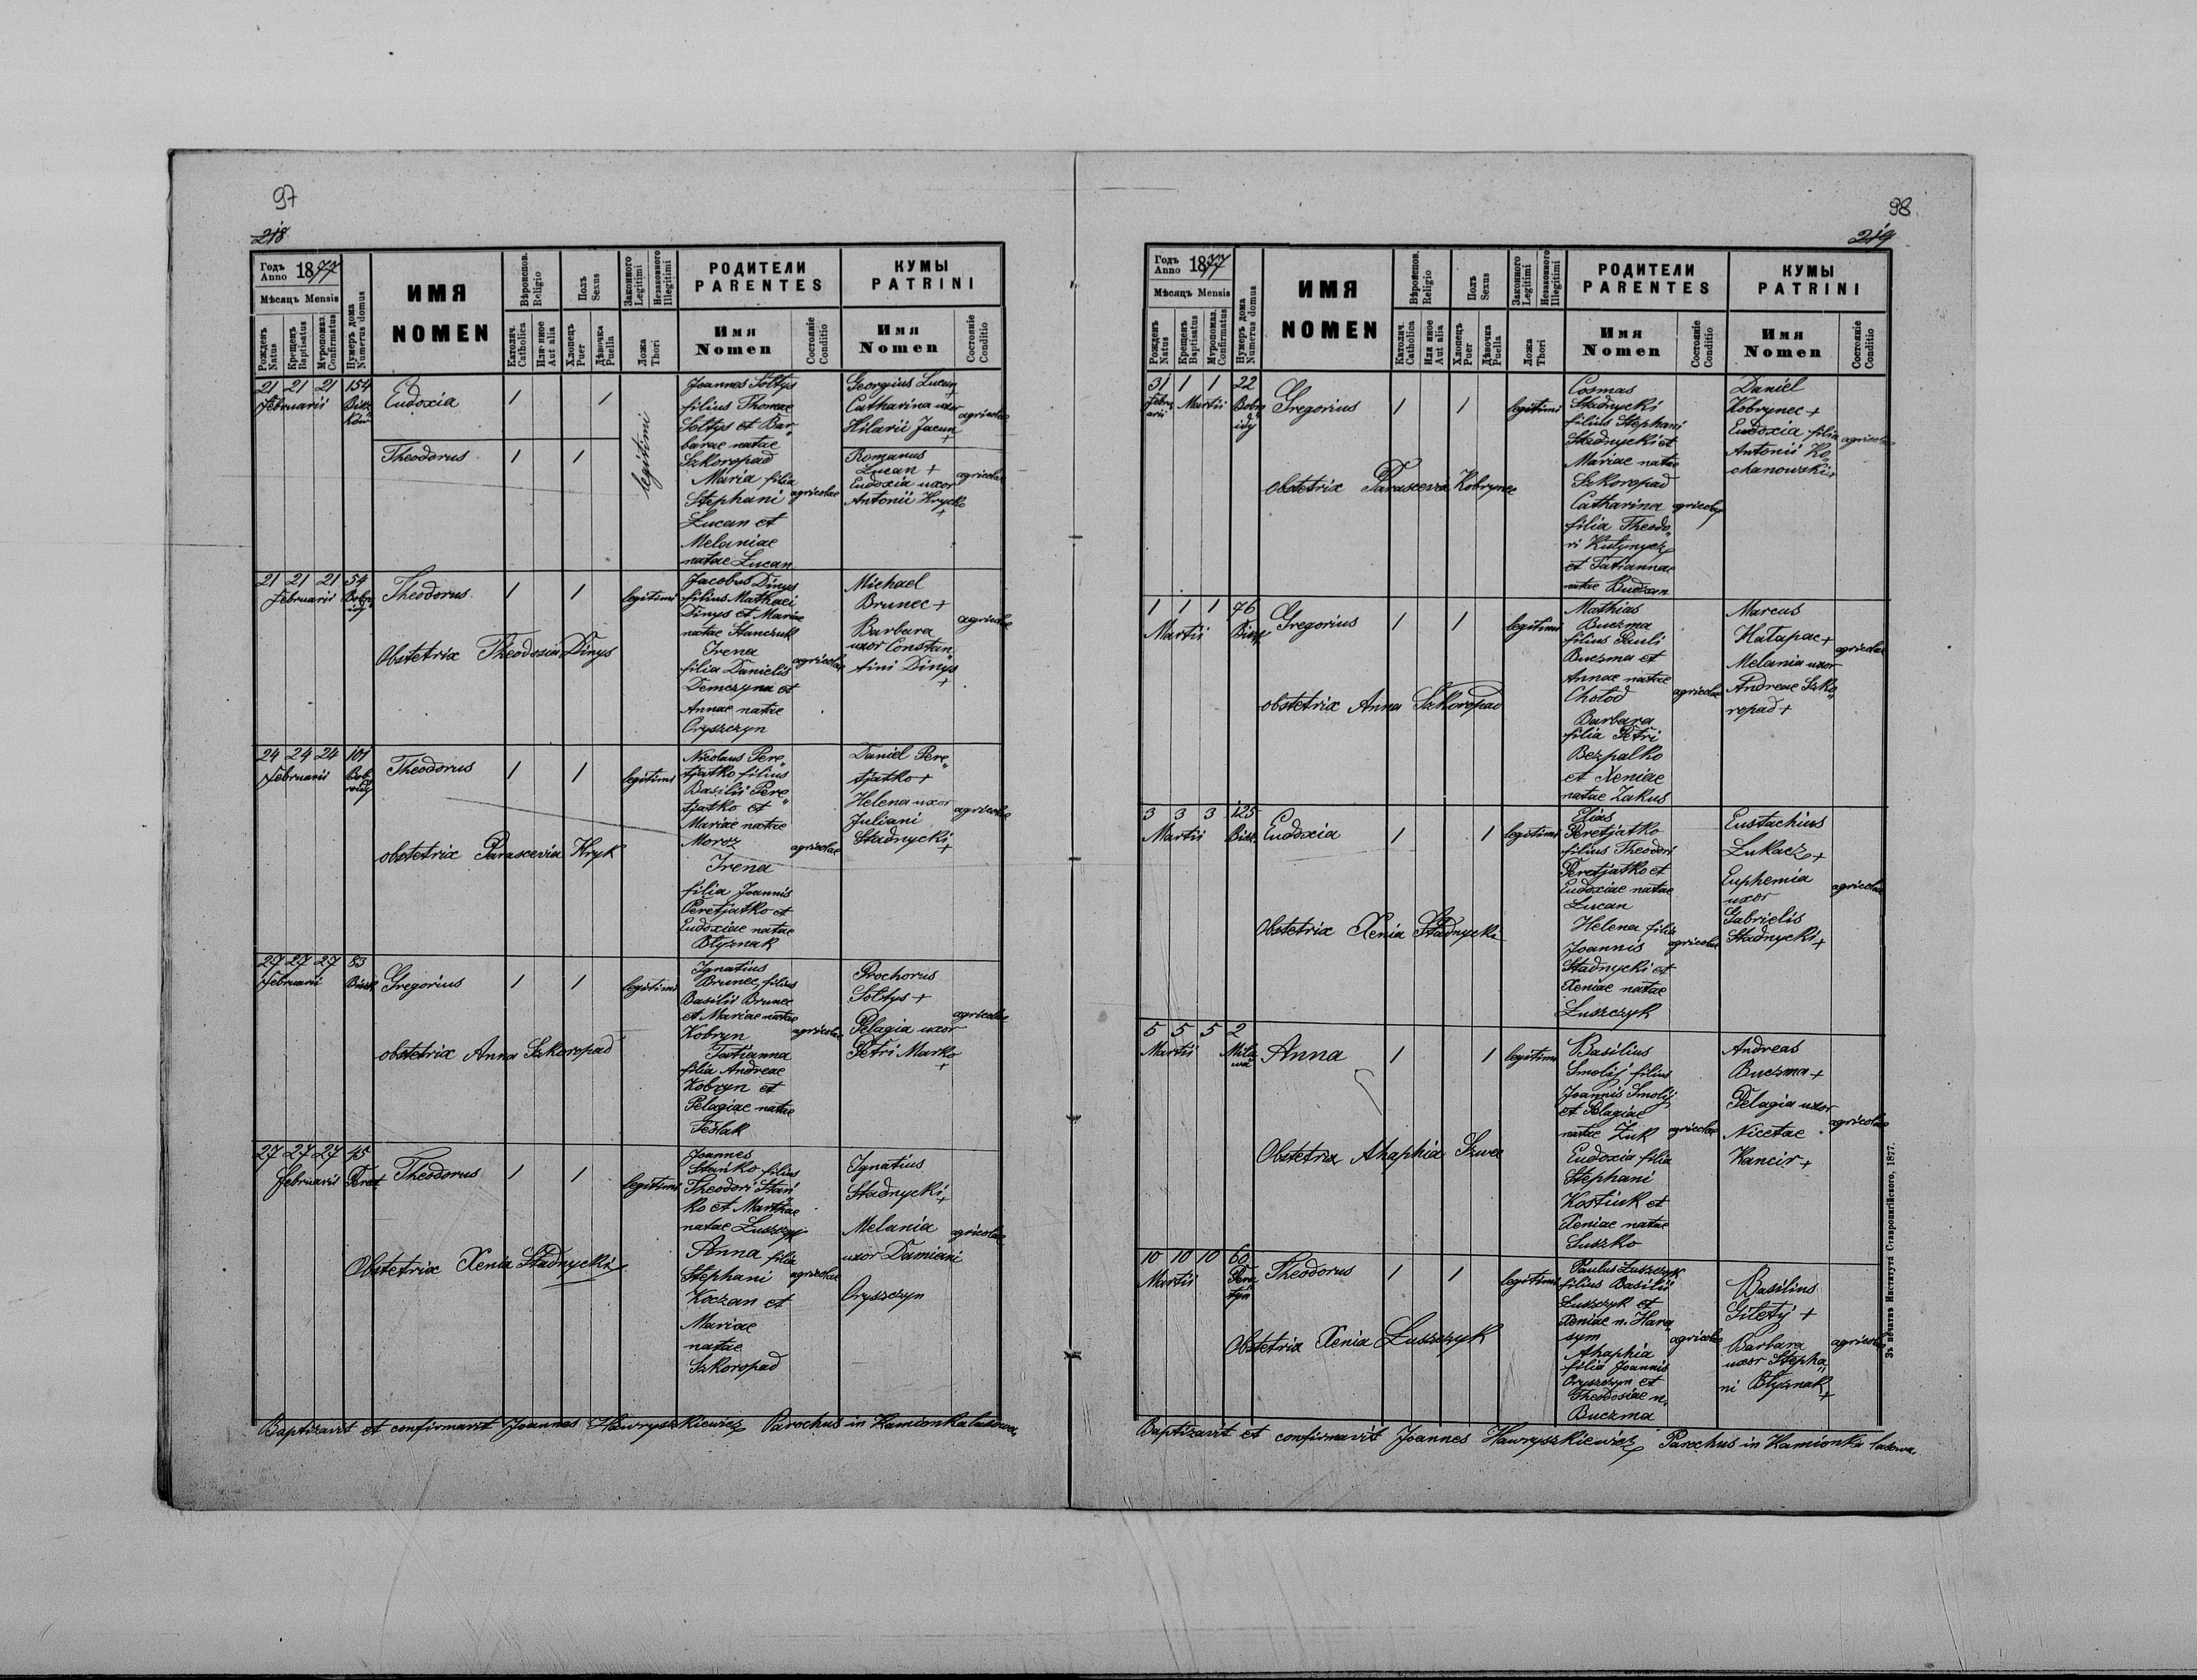 97
218
Годъ Anno 1877
Мѣсяцъ Mensis
Рожденъ Natus
Крещенъ Baptisatus
Мѵропомаз. Confirmatus
Нумеръ дома Numerus domus
ИМЯ
NOMEN
Вѣроиспов. Religio
Католич. Catholica
Или иное Aut alia
Полъ Sexus
Хлопецъ Puer
Дѣвочка Puella
Законного Legitimi
Незаконного Illegitimi
Ложа Thori
РОДИТЕЛИ
PARENTES
Имя Nomen
Состояніе Conditio
КУМЫ
PATRINI
Имя Nomen
Состояніе Conditio
21 21 21 154
Februarii
Eudoxia 1 1
Theodorus 1 1
legitimi
Joannes Soltys
filius Thomae
Soltys et Bar„
barae natae
Szkoropad
Maria filia
Stephani agricolae
Lucan et
Melaniae
natae Lucan
Georgius Lucan
Catharina uxor
Hilarii Jacun +
agricolae
Romanus
Lucan +
Eudoxia uxor
Antonii Hrycko
+
agricolae
21 21 21 54
Februarii
Theodorus 1 1 legitimi
Obstetrix Theodosia Dinys
Jacobus Dinys
filius Mathaei
Dinys et Mariae
natae Stanczuk
Irena
filia Danielis agricolae
Demczyna et
Annae natae
Oryszczyn
Michael
Brunec +
Barbara
uxor Constan„
tini Dinys
+
agricolae
24 24 24 101
Februarii
Theodorus 1 1 legitimi
obstetrix Parascevia Hryk
Nicolaus Pere„
tjatko filius
Basilii Pere„
tjatko et
Mariae natae
Moroz agricolae
Irena
filia Joannis
Peretjatko et
Eudoxiae natae
Blyznak
Daniel Pere„
tjatko +
Helena uxor
Juliani
Stadnycki
+
agricolae
27 27 27 83
Februarii
Gregorius 1 1 legitimi
obstetrix Anna Szkoropad
Ignatius
Brunec, filius
Basilii Brunec
et Mariae natae
Kobryn agricolae
Tatianna
filia Andreae
Kobryn et
Pelagiae natae
Teslak
Prochorus
Soltys +
Pelagia uxor
Petri Marko
+
agricolae
27 27 27 45
Februarii Peret
Theodorus 1 1 legitimi
Obstetrix Xenia Stadnycki
Joannes
Stanko filius
Theodori Stań„
ko et Marthae
natae Luszczyk
Anna filia
Stephani agricolae
Koczan et
Mariae
natae
Szkoropad
Ignatius
Stadnycki +
Melania
uxor Damiani
Oryszczyn
agricolae
Baptizavit et confirmavit Joannes Hawryszkiewicz Parochus in Kamionka lasowa.
98
219
Годъ Anno 1877
Мѣсяцъ Mensis
Рожденъ Natus
Крещенъ Baptisatus
Мѵропомаз. Confirmatus
Нумеръ дома Numerus domus
ИМЯ
NOMEN
Вѣроиспов. Religio
Католич. Catholica
Или иное Aut alia
Полъ Sexus
Хлопецъ Puer
Дѣвочка Puella
Законного Legitimi
Незаконного Illegitimi
Ложа Thori
РОДИТЕЛИ
PARENTES
Имя Nomen
Состояніе Conditio
КУМЫ
PATRINI
Имя Nomen
Состояніе Conditio
31 1 1 22
Febru„arii Martii
Gregorius 1 1 legitimi
obstetrix Parasceva Kobrynec
Cosmas
Stadnycki
filius Stephani
Stadnycki et
Mariae natae
Szkoropad
Catharina agricolae
filia Theodo„
ri Kutynycz
et Tatiannae
natae Budzan
Daniel
Kobrynec +
Eudoxia filia
Antonii Ko„
chanowski +
agricolae
1 1 1 76
Martii
Gregorius 1 1 legitimi
obstetrix Anna Szkoropad
Mathias
Buczma
filius Pauli
Buczma et
Annae natae
Chotod agricolae
Barbara
filia Petri
Bezpalko
et Xeniae
natae Zakus
Marcus
Hatapac +
Melania uxor
Andreae Szko„
ropad +
agricolae
3 3 3 125
Martii Bisz.
Eudoxia 1 1 legitimi
Obstetrix Xenia Stadnycki
Elias
Peretjatko
filius Theodori
Peretjatko et
Eudoxiae natae
Lucan
Helena filia
Joannis agricolae
Stadnycki et
Xeniae natae
Luszczyk
Eustachius
Lukacz +
Euphemia
uxor
Gabrielis
Stadnycki +
agricolae
5 5 5 2
Martii
Anna 1 1 legitimi
Obstetrix Ahaphia Szwec
Basilius
Smolij filius
Joannis Smolij
et Pelagiae
natae Zuk agricolae
Eudoxia filia
Stephani
Kostiuk et
Xeniae natae
Suszko
Andreas
Buczma +
Pelagia uxor
Nicetae
Kancir +
agricolae
10 10 10 60
Martii
Theodorus 1 1 legitimi
Obstetrix Xenia Luszczyk
Paulus Luszczyk
filius Basilii
Luszczyk et
Xeniae n. Hara„
sym agricolae
Ahaphia
filia Joannis
Oryszczyn et
Theodosiae n.
Buczma
Basilius
Giletij +
Barbara
uxor Stepha„
ni Blyznak
+
agricolae
Baptizavit et confirmavit Joannes Hawryszkiewicz Parochus in Kamionka lasowa.
Зъ печатнѣ Института Ставропигійского. 1877.